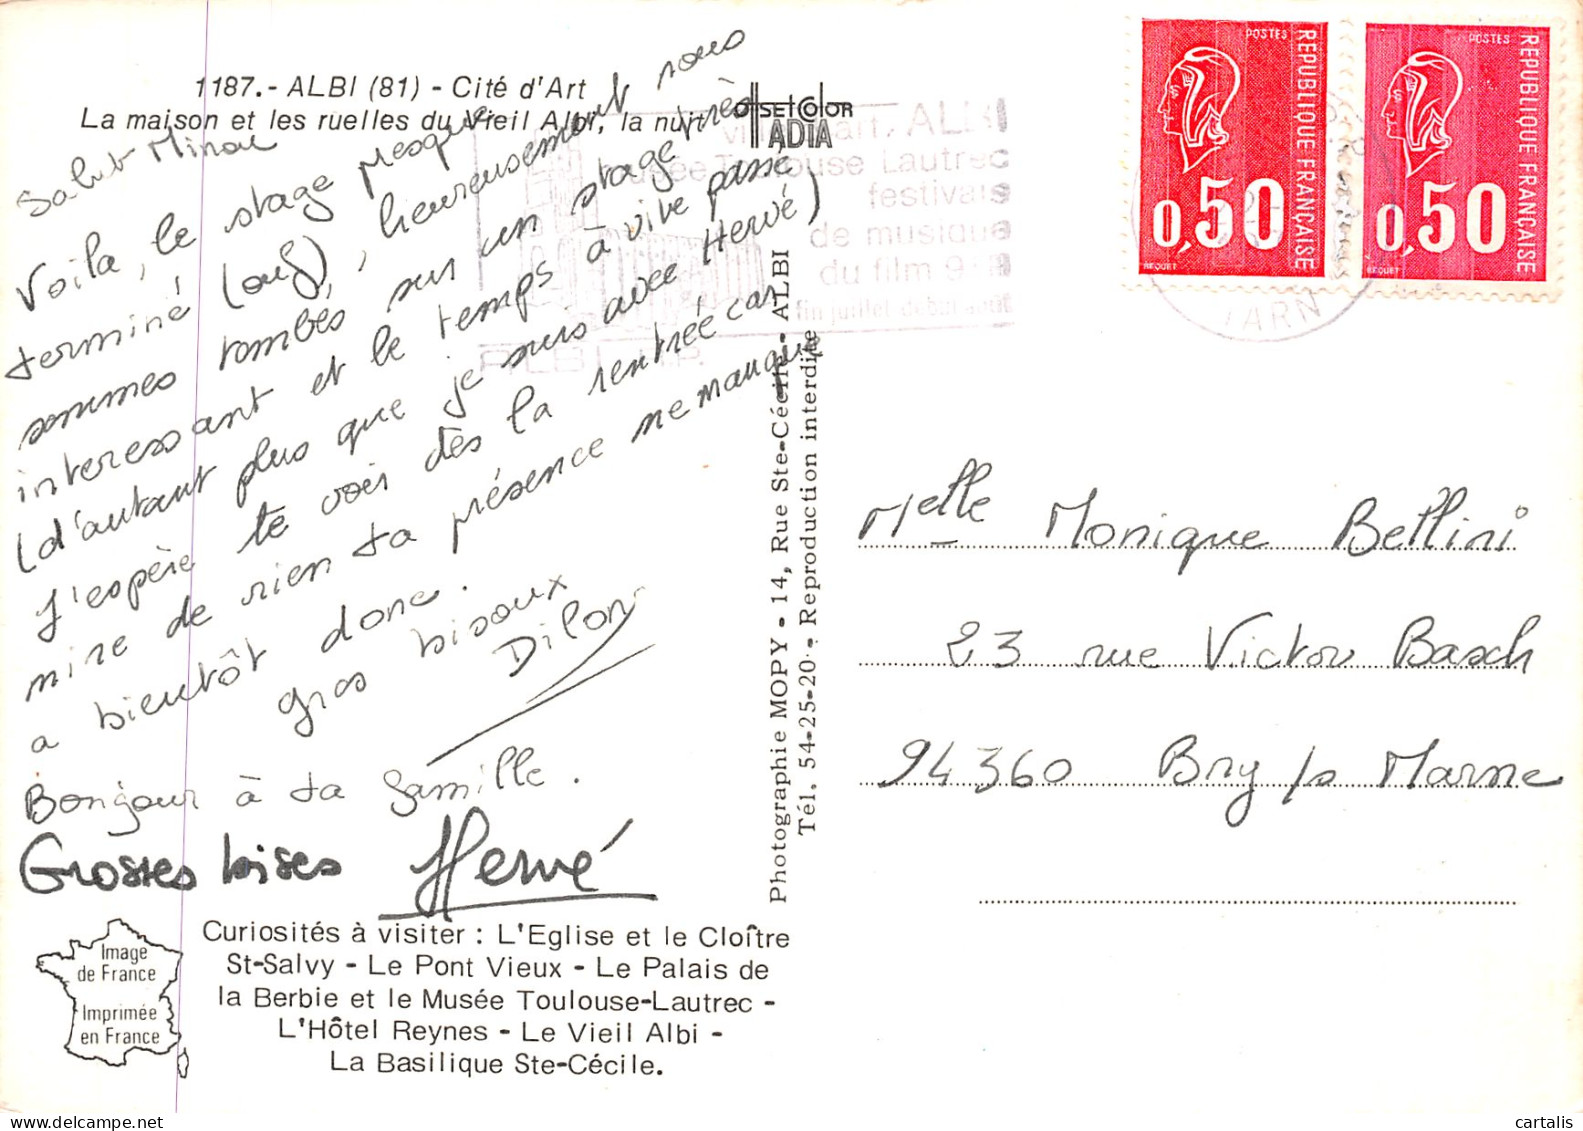 1187.- ALBI (81) - Cité d'Art
La maison et les ruelles du Vieil Albi, la nuit
offset color
ADIA
Salut
Voila, le stage presque
terminé (ouf), heureusement nous
sommes tombés sur un stage très
interessant et le temps à vite passé
(d'autant plus que je suis avec Hervé)
J'espère te voir dès la rentrée car
mine de rien ta présence me manque
a bientôt donc.
gros bisoux
Bonjour à ta famille.
Grosses bises Hervé
Image
de France
Imprimée
en France
Curiosités à visiter : L'Eglise et le Cloître
St-Salvy - Le Pont Vieux - Le Palais de
la Berbie et le Musée Toulouse-Lautrec -
L'Hôtel Reynes - Le Vieil Albi -
La Basilique Ste-Cécile.
Photographie MOPY - 14, Rue Ste-Cécile - ALBI
Tél. 54-25-20 - Reproduction interdite
ville d'art, ALBI
musée Toulouse Lautrec
festivals
de musique
du film 9
fin juillet-début août
TARN
POSTES
REPUBLIQUE FRANÇAISE
0,50
BEQUET
POSTES
REPUBLIQUE FRANÇAISE
0,50
BEQUET
Melle Monique Bellini
23 rue Victor Basch
94360 Bry /s Marne
cartalis